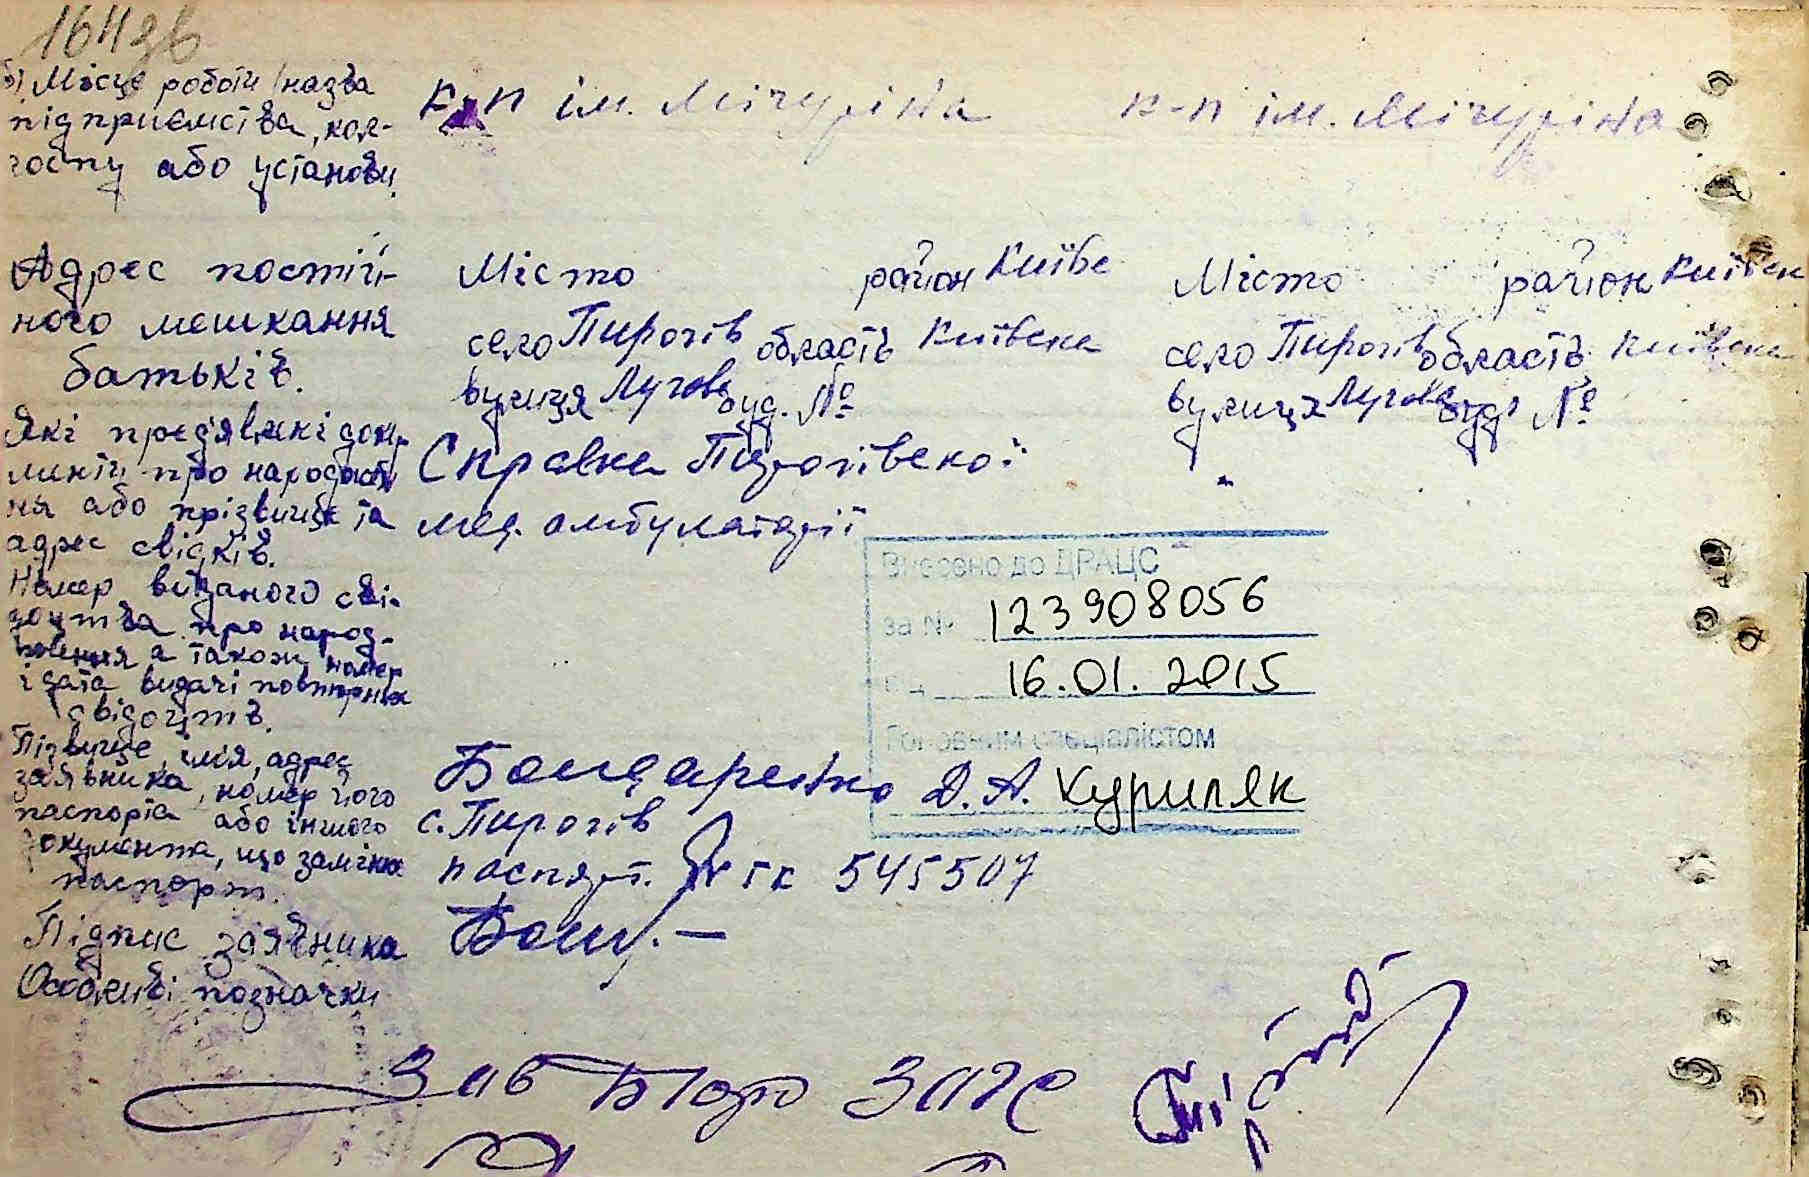 164зв
б) Місце роботи /назва
підприємства, кол-
госпу або установи.
к-п ім. Мічуріна к-п ім. Мічуріна
Адрес постій-
ного мешкання
батьків.
Місто район Київс
село Пирогів область Київська
вулиця Лугова буд. №
Місто район Київськ
село Пирогів область Київська
вулиця Лугова буд. №
Які пред'явлені доку-
менти про народжен-
ня або прізвище та
адрес свідків.
Справка Пирогівської "
мед. амбулаторії
Номер виданого сві-
доцтва про народ-
ження а також номер
і дата видачі повторних
свідоцтв.
Внесено до ДРАЦС
за № 123908056
від 16.01.2015
Головним спеціалістом
Куриляк
Пізвище, ім'я, адрес
заявника, номер його
паспорта або іншого
документа, що заміняє
паспорт.
Бондаренко Д. А.
с. Пирогів
паспорт. ІV ГК 545507
Підпис заявника
Бонд. –
Особливі позначки
Зав Бюро ЗАГС